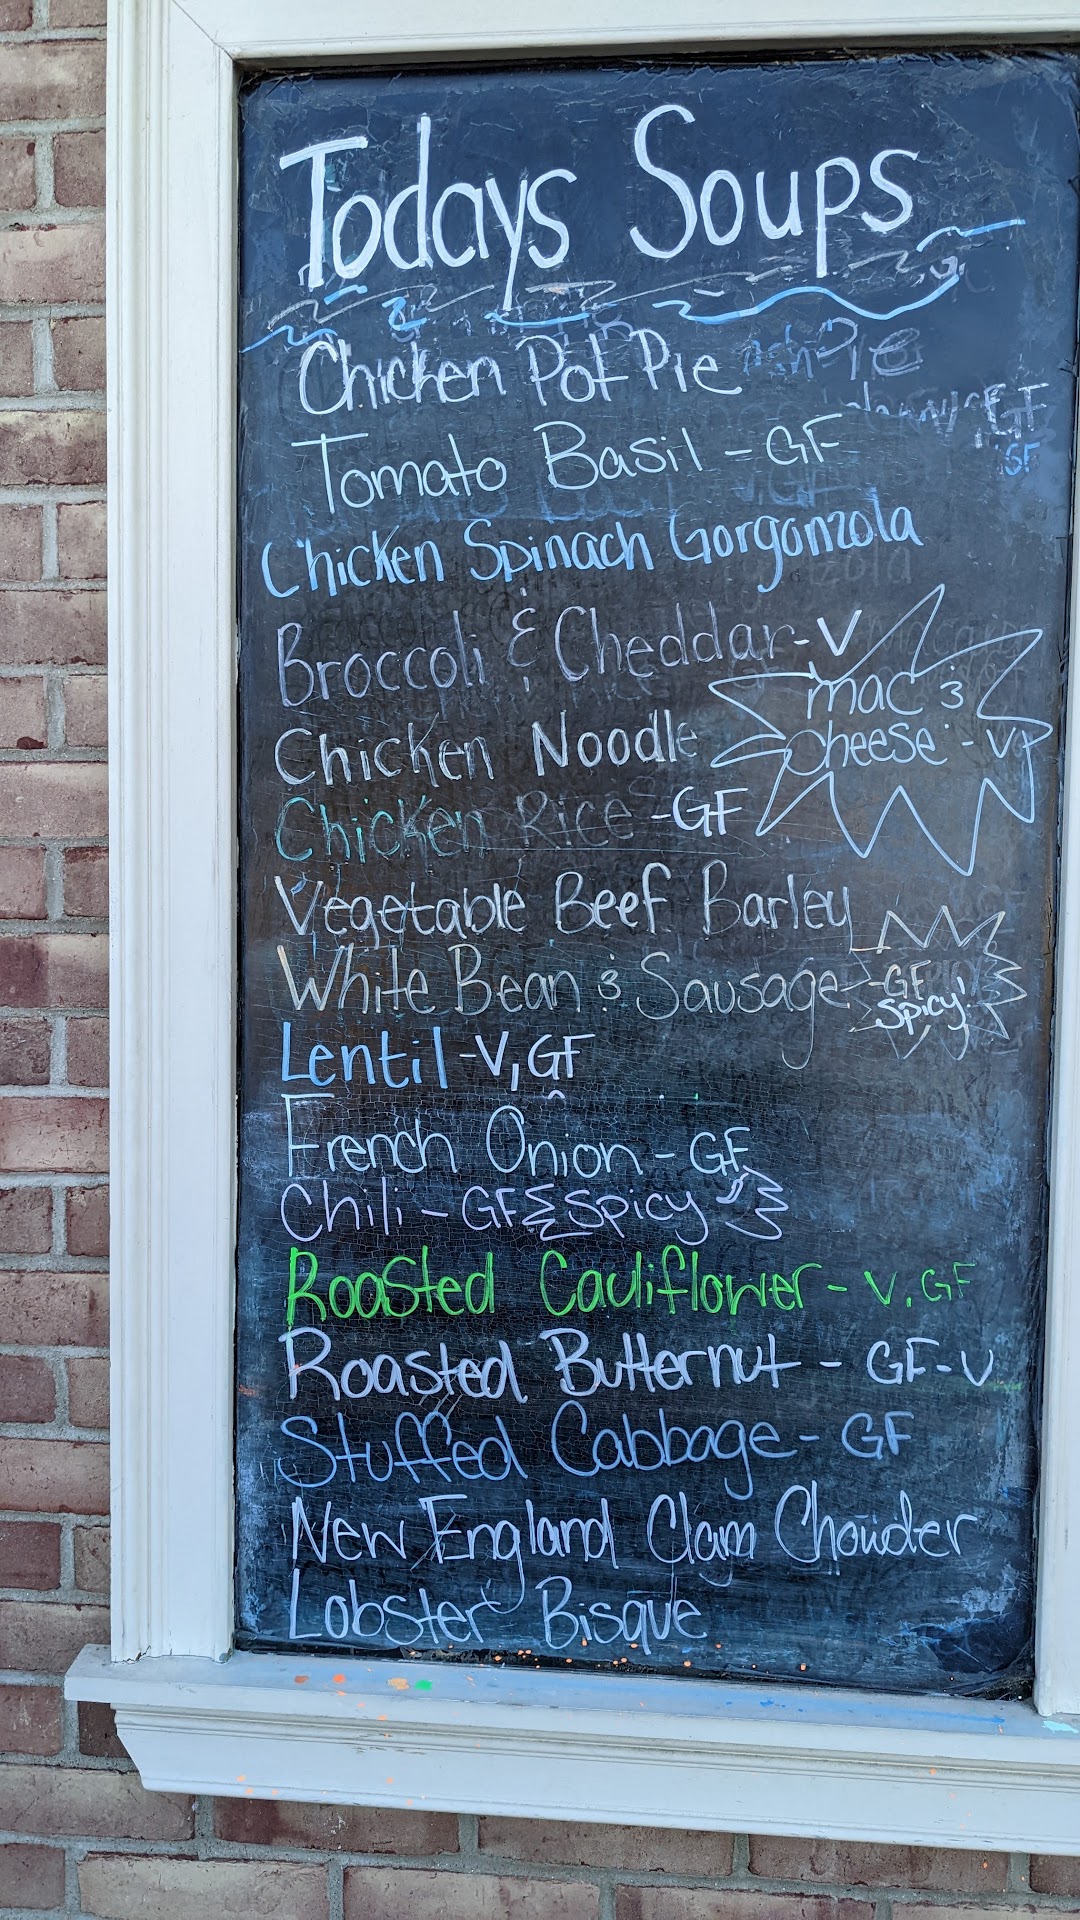 Todays Soups
Chicken Pot Pie
Tomato Basil - GF
Chicken Spinach Gorgonzola
Broccoli & Cheddar - V
mac &
cheese - V
Chicken Noodle
Chicken Rice - GF
Vegetable Beef Barley
White Bean & Sausage - GF
Spicy!
Lentil - V, GF
French Onion - GF
Chili - GF Spicy
Roasted Cauliflower - V, GF
Roasted Butternut - GF - V
Stuffed Cabbage - GF
New England Clam Chowder
Lobster Bisque